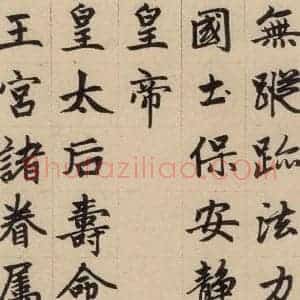 無蹤跡法力
國土保安靜
皇帝
皇太后壽命
王宮諸眷属
shufaziliao.com